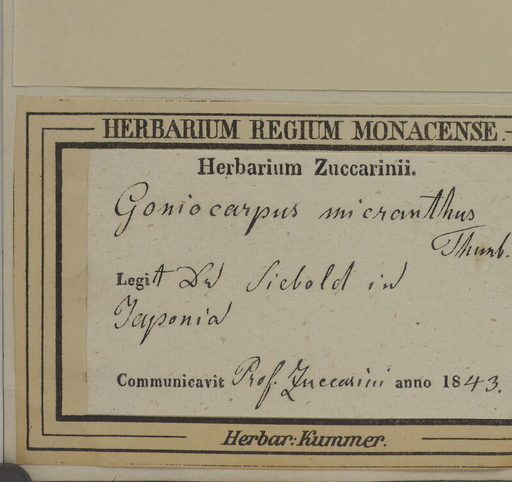 HERBARIUM REGIUM MONACENSE.
Herbarium Zuccarinii.
Goniocarpus micranthus
Thunb.
Legit Dr Siebold in
Japonia
Communicavit Prof. Zuccarini anno 1843.
Herbar: Kummer.